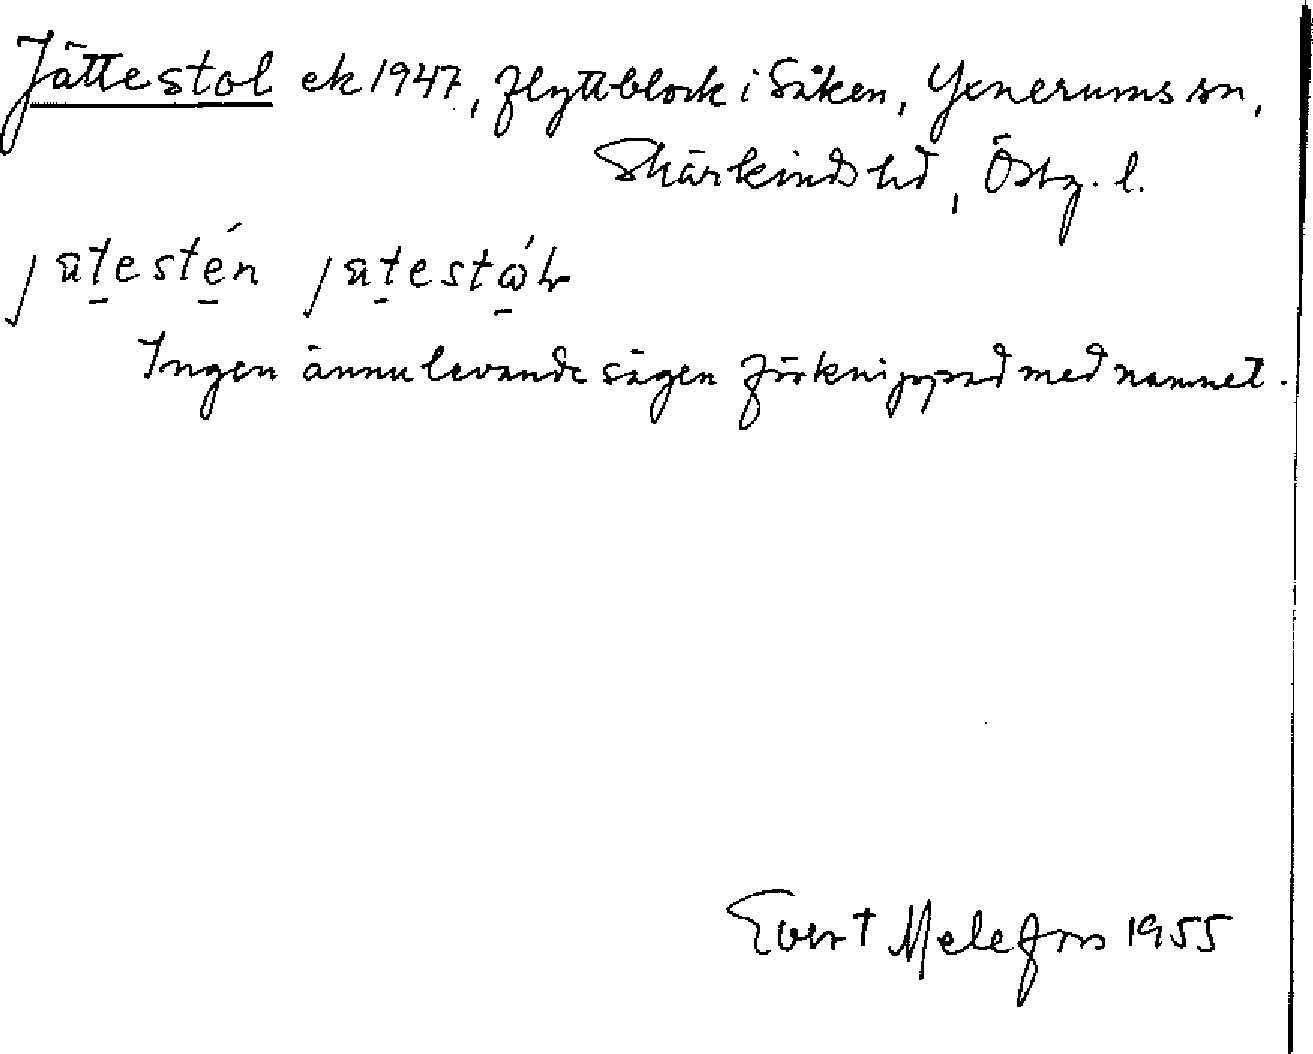 Jättestol ek 1947, flyttblock i Säken, Yxnerums sn,
Skärkinds hd, Östg. l.
Ingen ännu levande sägen förknippad med namnet.
Evert Melefors 1955